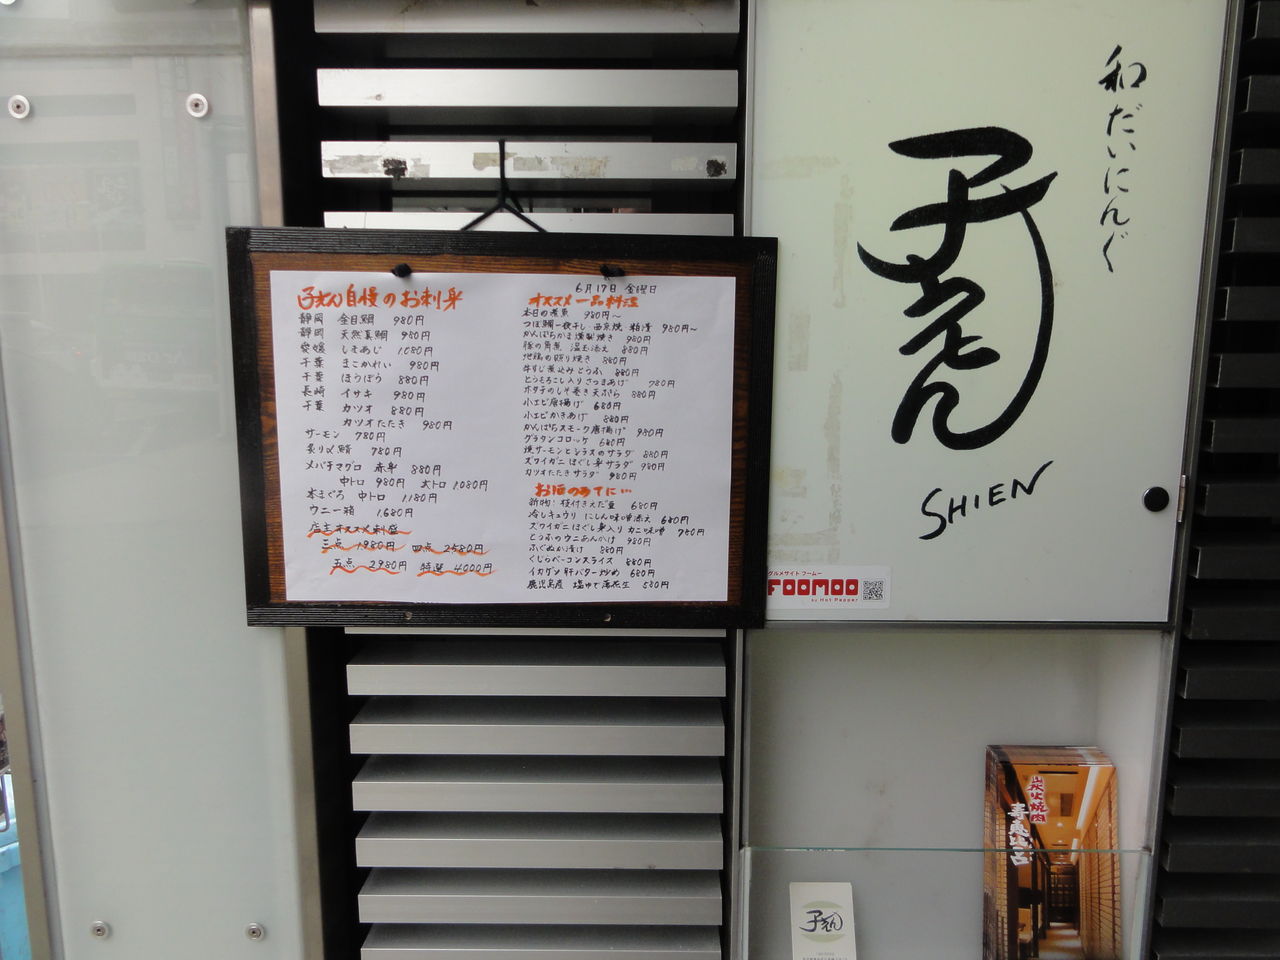 子えん自慢のお刺身
静岡 金目鯛 980円
静岡 天然真鯛 980円
愛媛 しまあじ 1080円
千葉 まこかれい 980円
千葉 ほうぼう 880円
長崎 イサキ 980円
千葉 カツオ 880円
カツオたたき 980円
サーモン 780円
炙り〆鯖 780円
メバチマグロ 赤身 880円
中トロ 980円 大トロ 1080円
本まぐろ 中トロ 1180円
ウニ一箱 1,680円
店主オススメ刺盛
三点 1980円 四点 2580円
五点 2980円 特選 4000円
6月17日 金曜日
オススメ一品料理
本日の煮魚 980円〜
つぼ鯛一夜干し 西京焼 粕漬 980円〜
かんぱちかま塩焼き 980円
豚の角煮 温玉添え 880円
地鶏の照り焼き 880円
牛すじ煮込みとうふ 880円
とうもろこし入りさつまあげ 780円
ホタテのしそ巻き天ぷら 880円
小エビ唐揚げ 680円
小エビかきあげ 880円
かんぱちスモーク唐揚げ 980円
グラタンコロッケ 680円
焼サーモンとシラスのサラダ 880円
ズワイガニほぐし身サラダ 980円
カツオたたきサラダ 980円
お酒のあてに…
新物! 枝付きえだ豆 680円
冷しキュウリ にしん味噌添え 680円
ズワイガニほぐし身入りカニ味噌 780円
とうふのウニあんかけ 980円
ふぐぬか漬け 880円
くじらベーコンスライス 880円
イカゲソ肝バター炒め 680円
鹿児島産 塩ゆで落花生 580円
和だいにんぐ
子えん
SHIEN
グルメサイト フームー
FOOMOO
by Hot Pepper
炭火焼肉
子えん